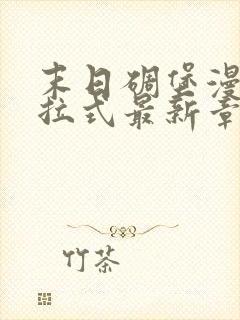 末日碉堡漫
拉式最新章
竹茶